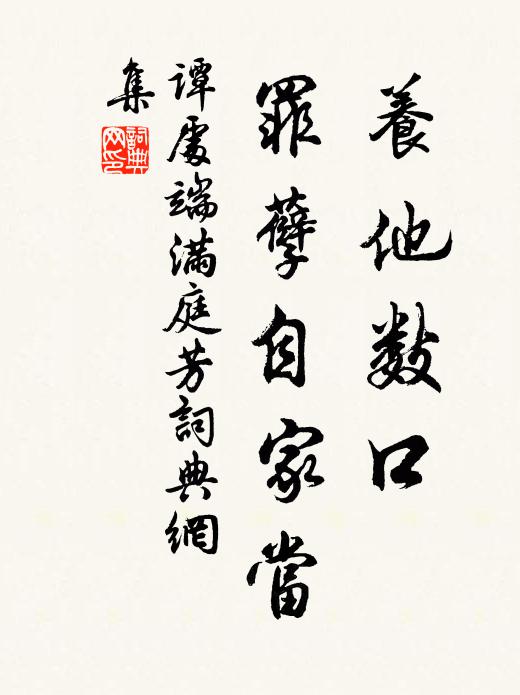 養他數口
罪孽自家當
譚處端滿庭芳詞典網
集
詞典
网印